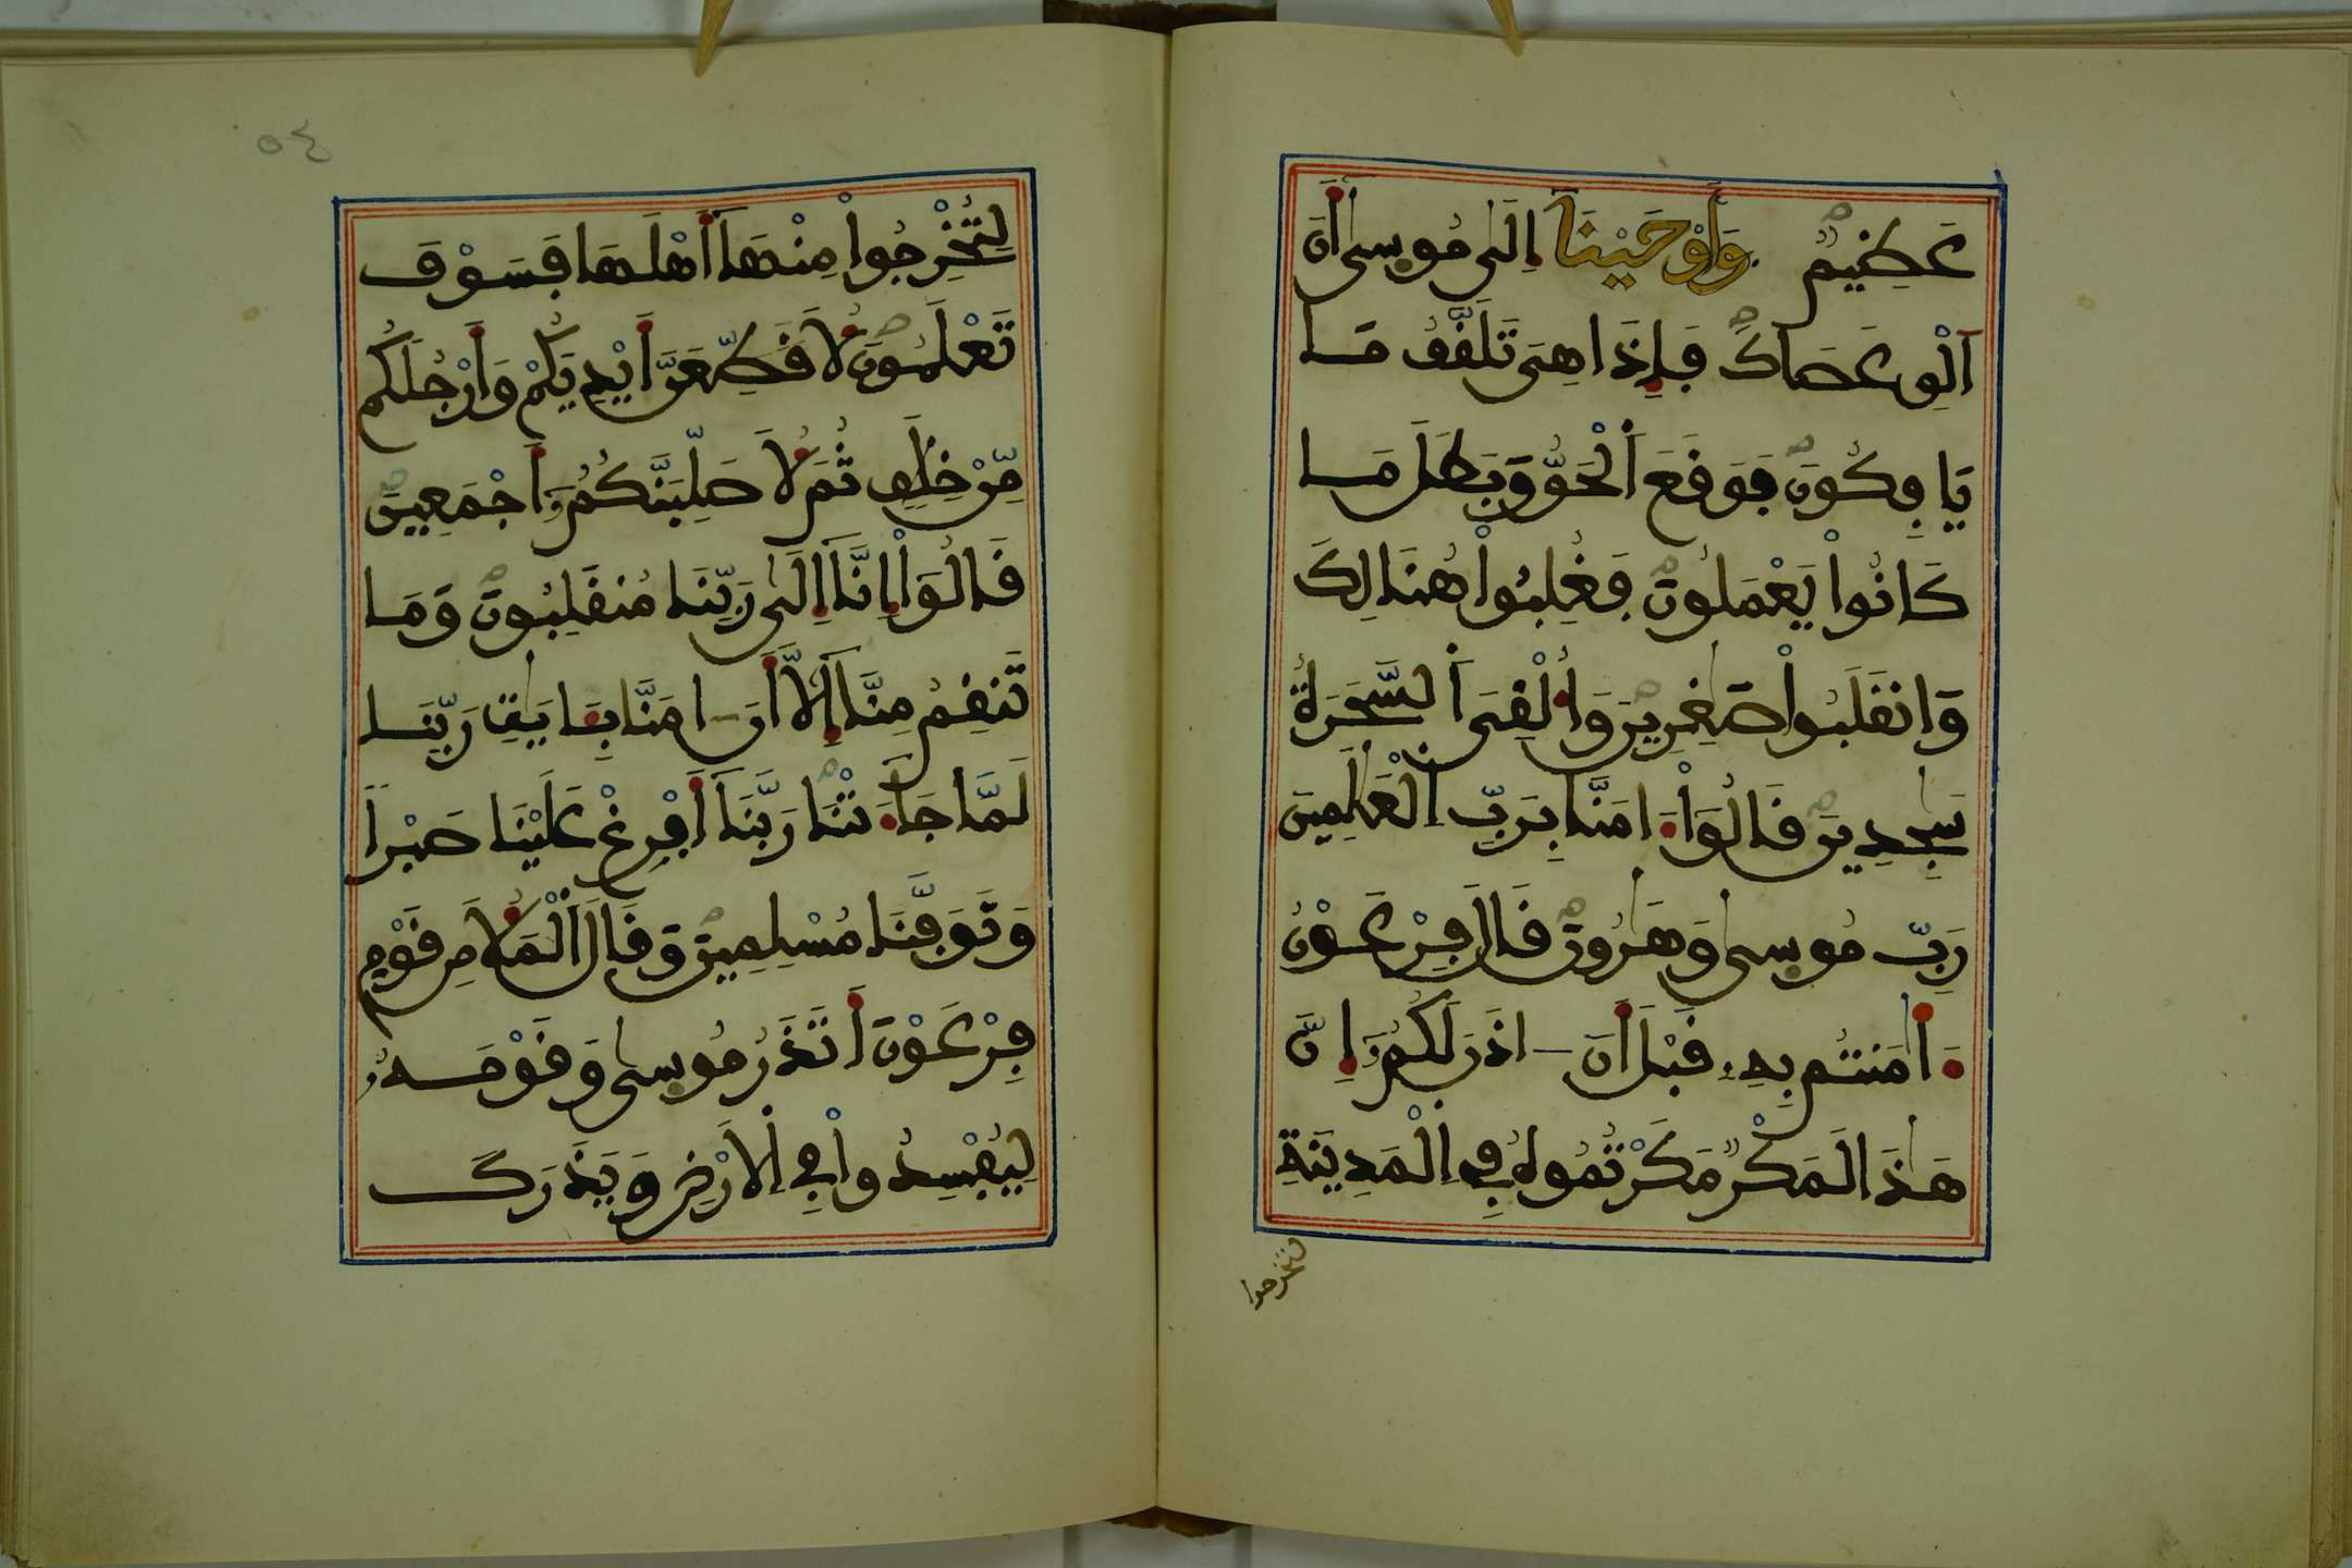 عَظِيمٍ وَأَوْحَيْنَآ إِلَىٰ مُوسَىٰ أَنَ
اَلْقِ عَصَاكَ فَإِذَا هِىَ تَلَقَّفُ مَا
يَافِكُونَ فَوَقَعَ اَلْحَقُّ وَبَطَلَ مَا
كَانُواْ يَعْمَلُونَ فَغُلِبُواْ هُنَالِكَ
وَانقَلَبُواْ صَٰغِرِينَ وَأُلْقِىَ اَلسَّحَرَةُ
سَٰجِدِينَ قَالُوٓاْ ءَامَنَّا بِرَبِّ اِلْعَٰلَمِينَ
رَبِّ مُوسَىٰ وَهَٰرُونَ قَالَ فِرْعَوْنُ
ءَاٰمَنتُم بِهِۦ قَبْلَ أَنَ ـ اذَنَ لَكُمُۥٓ إِنَّ
هَٰذَا لَمَكْرٌ مَّكَرْتُمُوهُ فِى اِلْمَدِينَةِ
لتخرجوا
٥٤
لِتُخْرِجُواْ مِنْهَآ أَهْلَهَا فَسَوْفَ
تَعْلَمُونَ لَأُقَطِّعَنَّ أَيْدِيَكُمْ وَأَرْجُلَكُم
مِّنْ خِلَٰفٍ ثُمَّ لَأُصَلِّبَنَّكُمُۥٓ أَجْمَعِينَ
قَالُوٓاْ إِنَّآ إِلَىٰ رَبِّنَا مُنقَلِبُونَ وَمَا
تَنقِمُ مِنَّآ إِلَّآ أَنَ ـ امَنَّا بِـَٔايَٰتِ رَبِّنَا
لَمَّا جَآءَتْنَا رَبَّنَآ أَفْرِغْ عَلَيْنَا صَبْراً
وَتَوَفَّنَا مُسْلِمِينَ وَقَالَ اَلْمَلَأُ مِن قَوْمِ
فِرْعَوْنَ أَتَذَرُ مُوسَىٰ وَقَوْمَهُۥ
لِيُفْسِدُواْ فِى اِلَارْضِ وَيَذَرَكَ